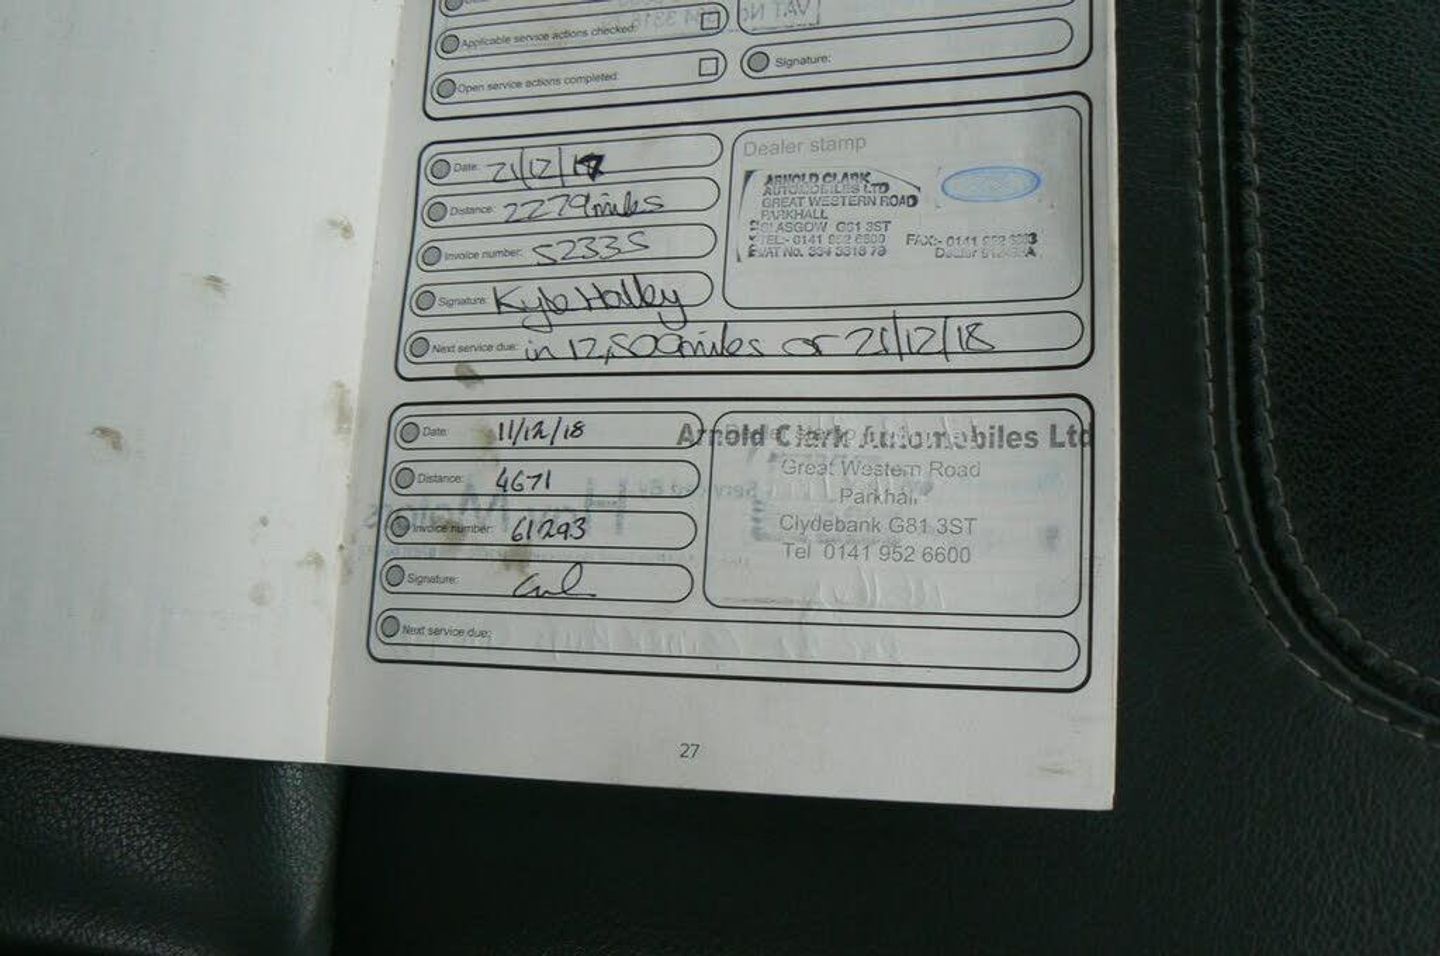 Applicable service actions checked:
Open service actions completed:
VAT No
Signature:
Date: 21/12/17
Distance: 2279miles
Invoice number: 52335
Signature: Kyle Halley
Next service due: in 12,500miles or 21/12/18
Dealer stamp
ARNOLD CLARK
AUTOMOBILES LTD
GREAT WESTERN ROAD
PARKHALL
GLASGOW G81 3ST
TEL:- 0141 952 6600 FAX:- 0141
VAT No. 334 3318 73 Dealer
Date: 11/12/18
Distance: 4671
Invoice number: 61293
Signature:
Next service due:
Arnold Clark Automobiles Ltd
Great Western Road
Parkhall
Clydebank G81 3ST
Tel 0141 952 6600
27